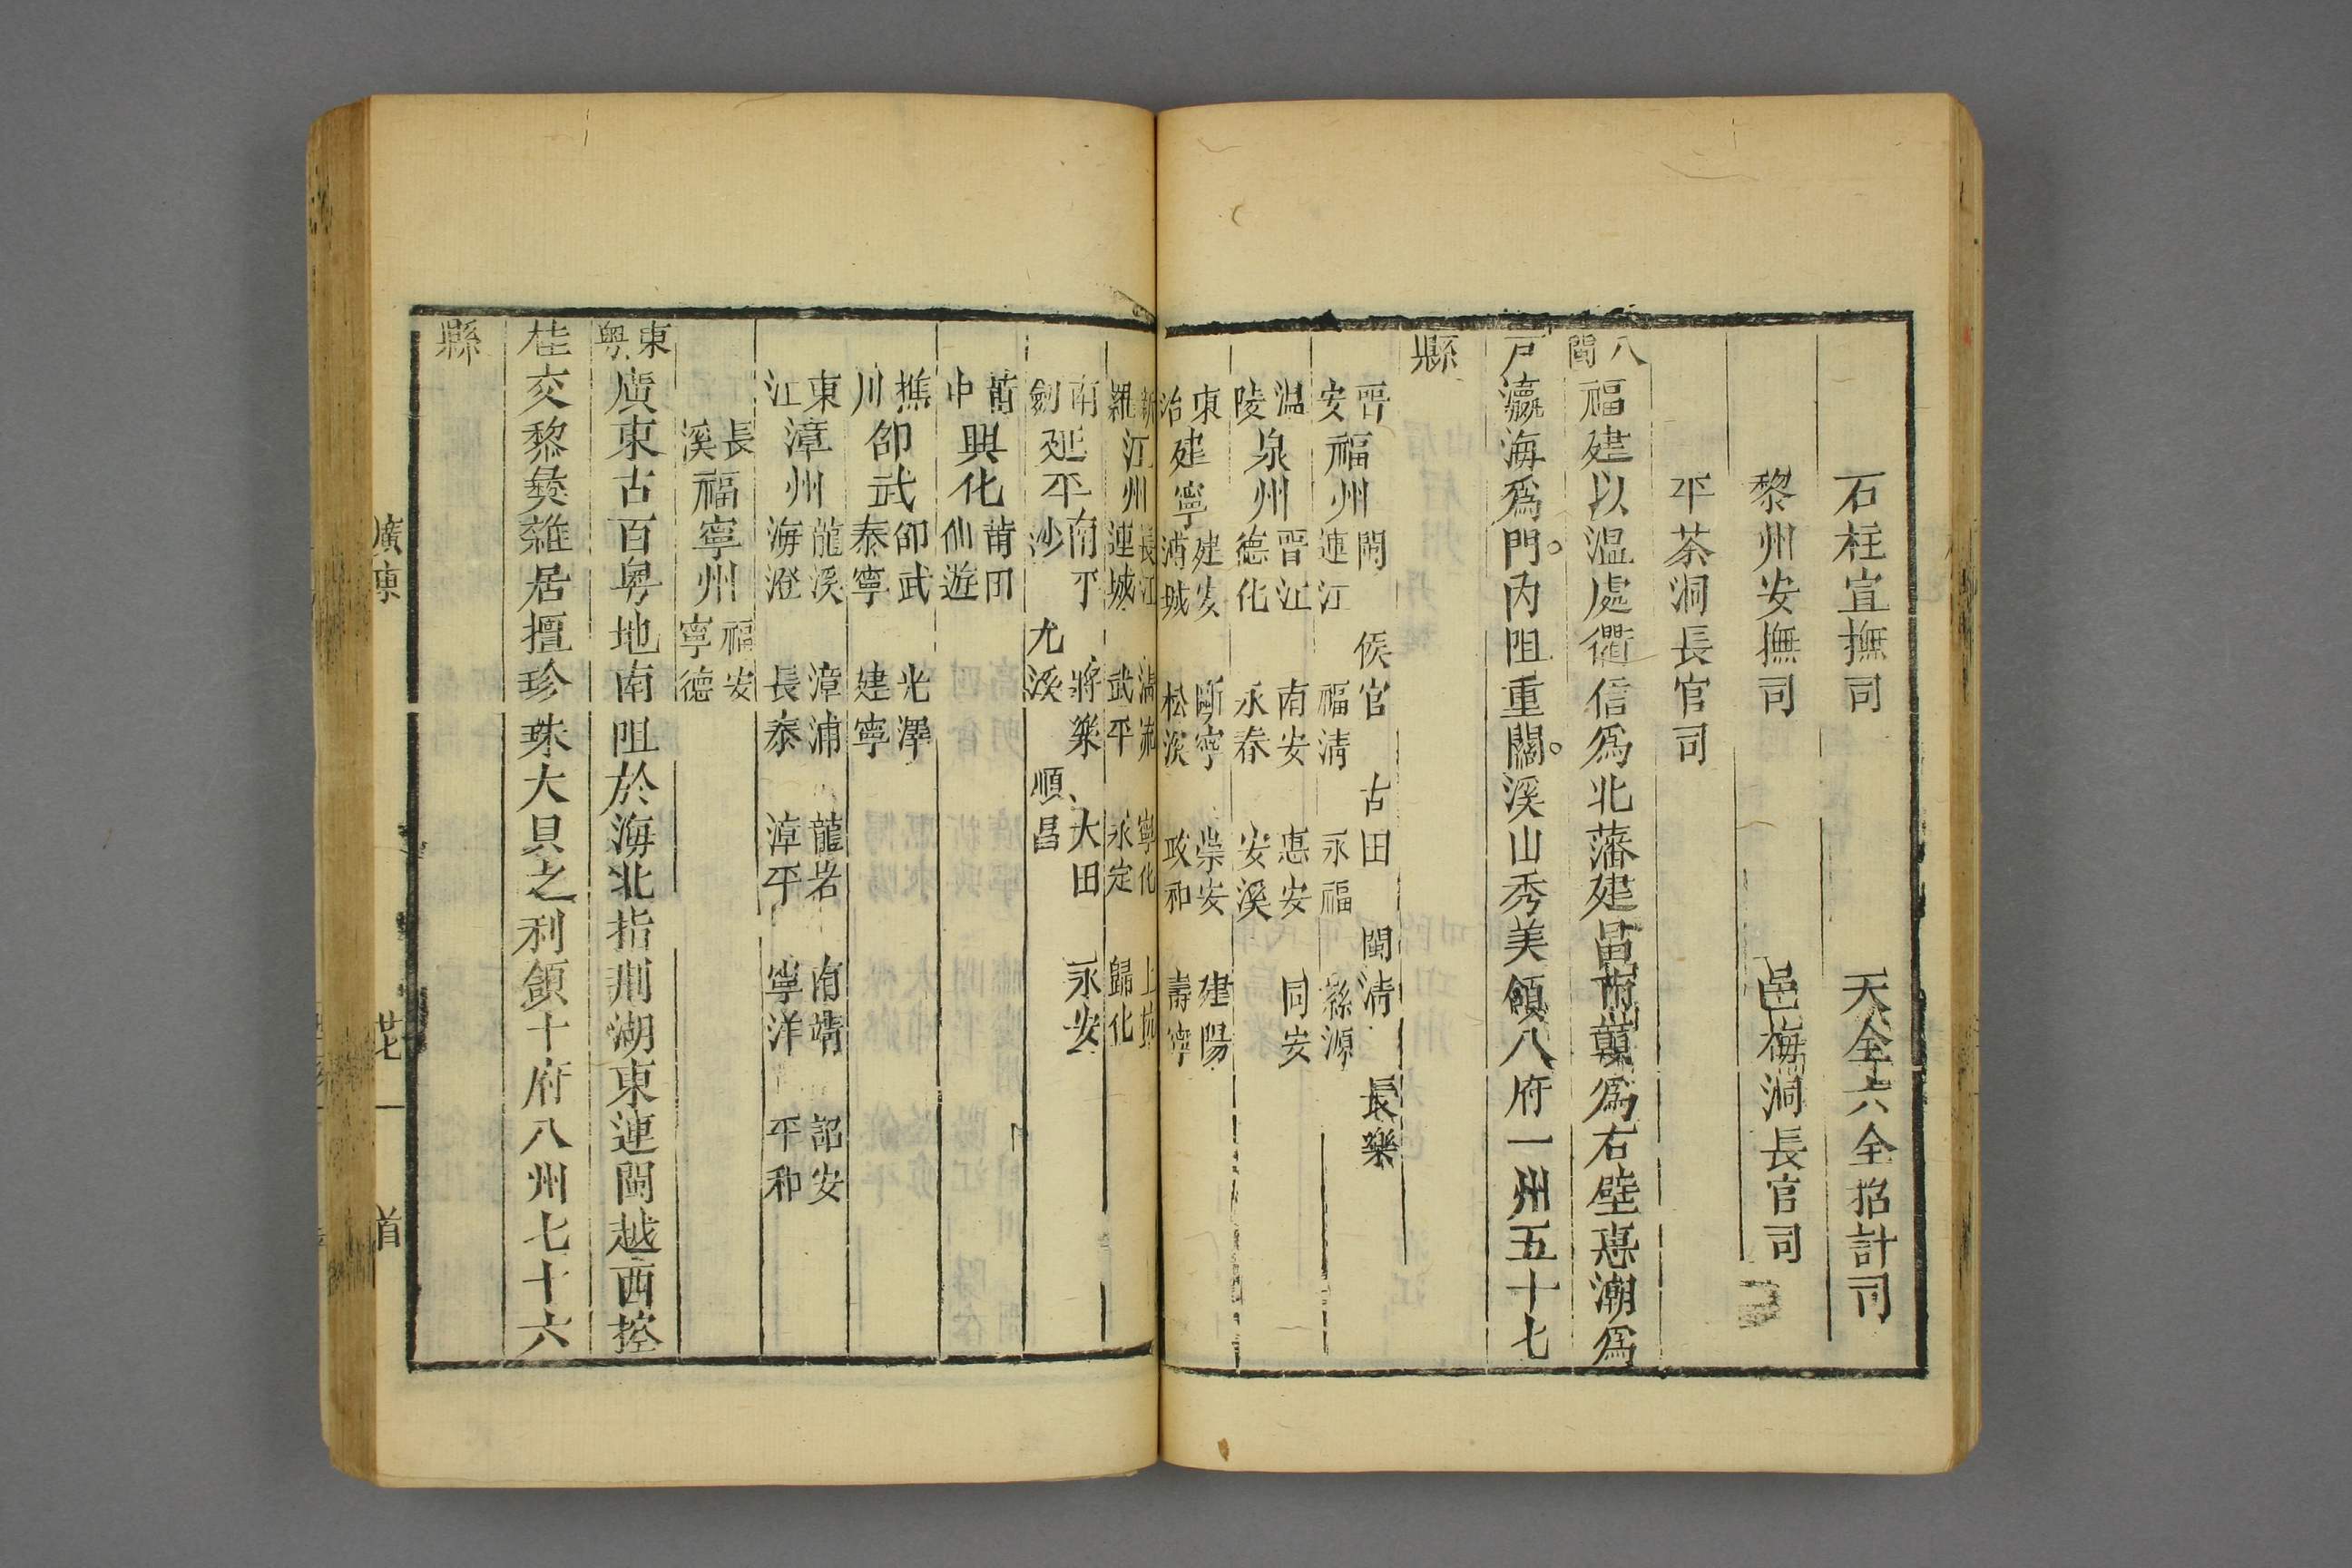 石柱宣撫司　天全六全招計司
黎州安撫司　邑梅洞長官司
平茶洞長官司
八閩 福建以溫處衢信爲北藩建昌贛爲右壁惠潮爲
戸瀛海爲門內阻重關溪山秀美領八府一州五十七
縣
晉安 福州 閩 侯官 古田 閩清 長樂
連江 福清 永福 羅源
温陵 泉州 晋江 南安 惠安 同安
德化 永春 安溪
東冶 建寧 建安 甌寧 崇安 建陽
浦城 松溪 政和 壽寧
新羅 汀州 長汀 清流 寧化 上杭
連城 武平 永定 歸化
南劒 延平 南平 將樂 大田 永安
沙 尤溪 順昌
莆中 興化 莆田
仙遊
樵川 邵武 邵武 光澤
泰寧 建寧
東江 漳州 龍溪 漳浦 龍岩 南靖 詔安
海澄 長泰 漳平 寧洋 平和
長溪 福寧州 福安
寧德
東粵 廣東古百粤地南阻於海北指荆湖東連閩越西控
桂交黎彝雜居擅珍珠大貝之利領十府八州七十六
縣
廣東 首